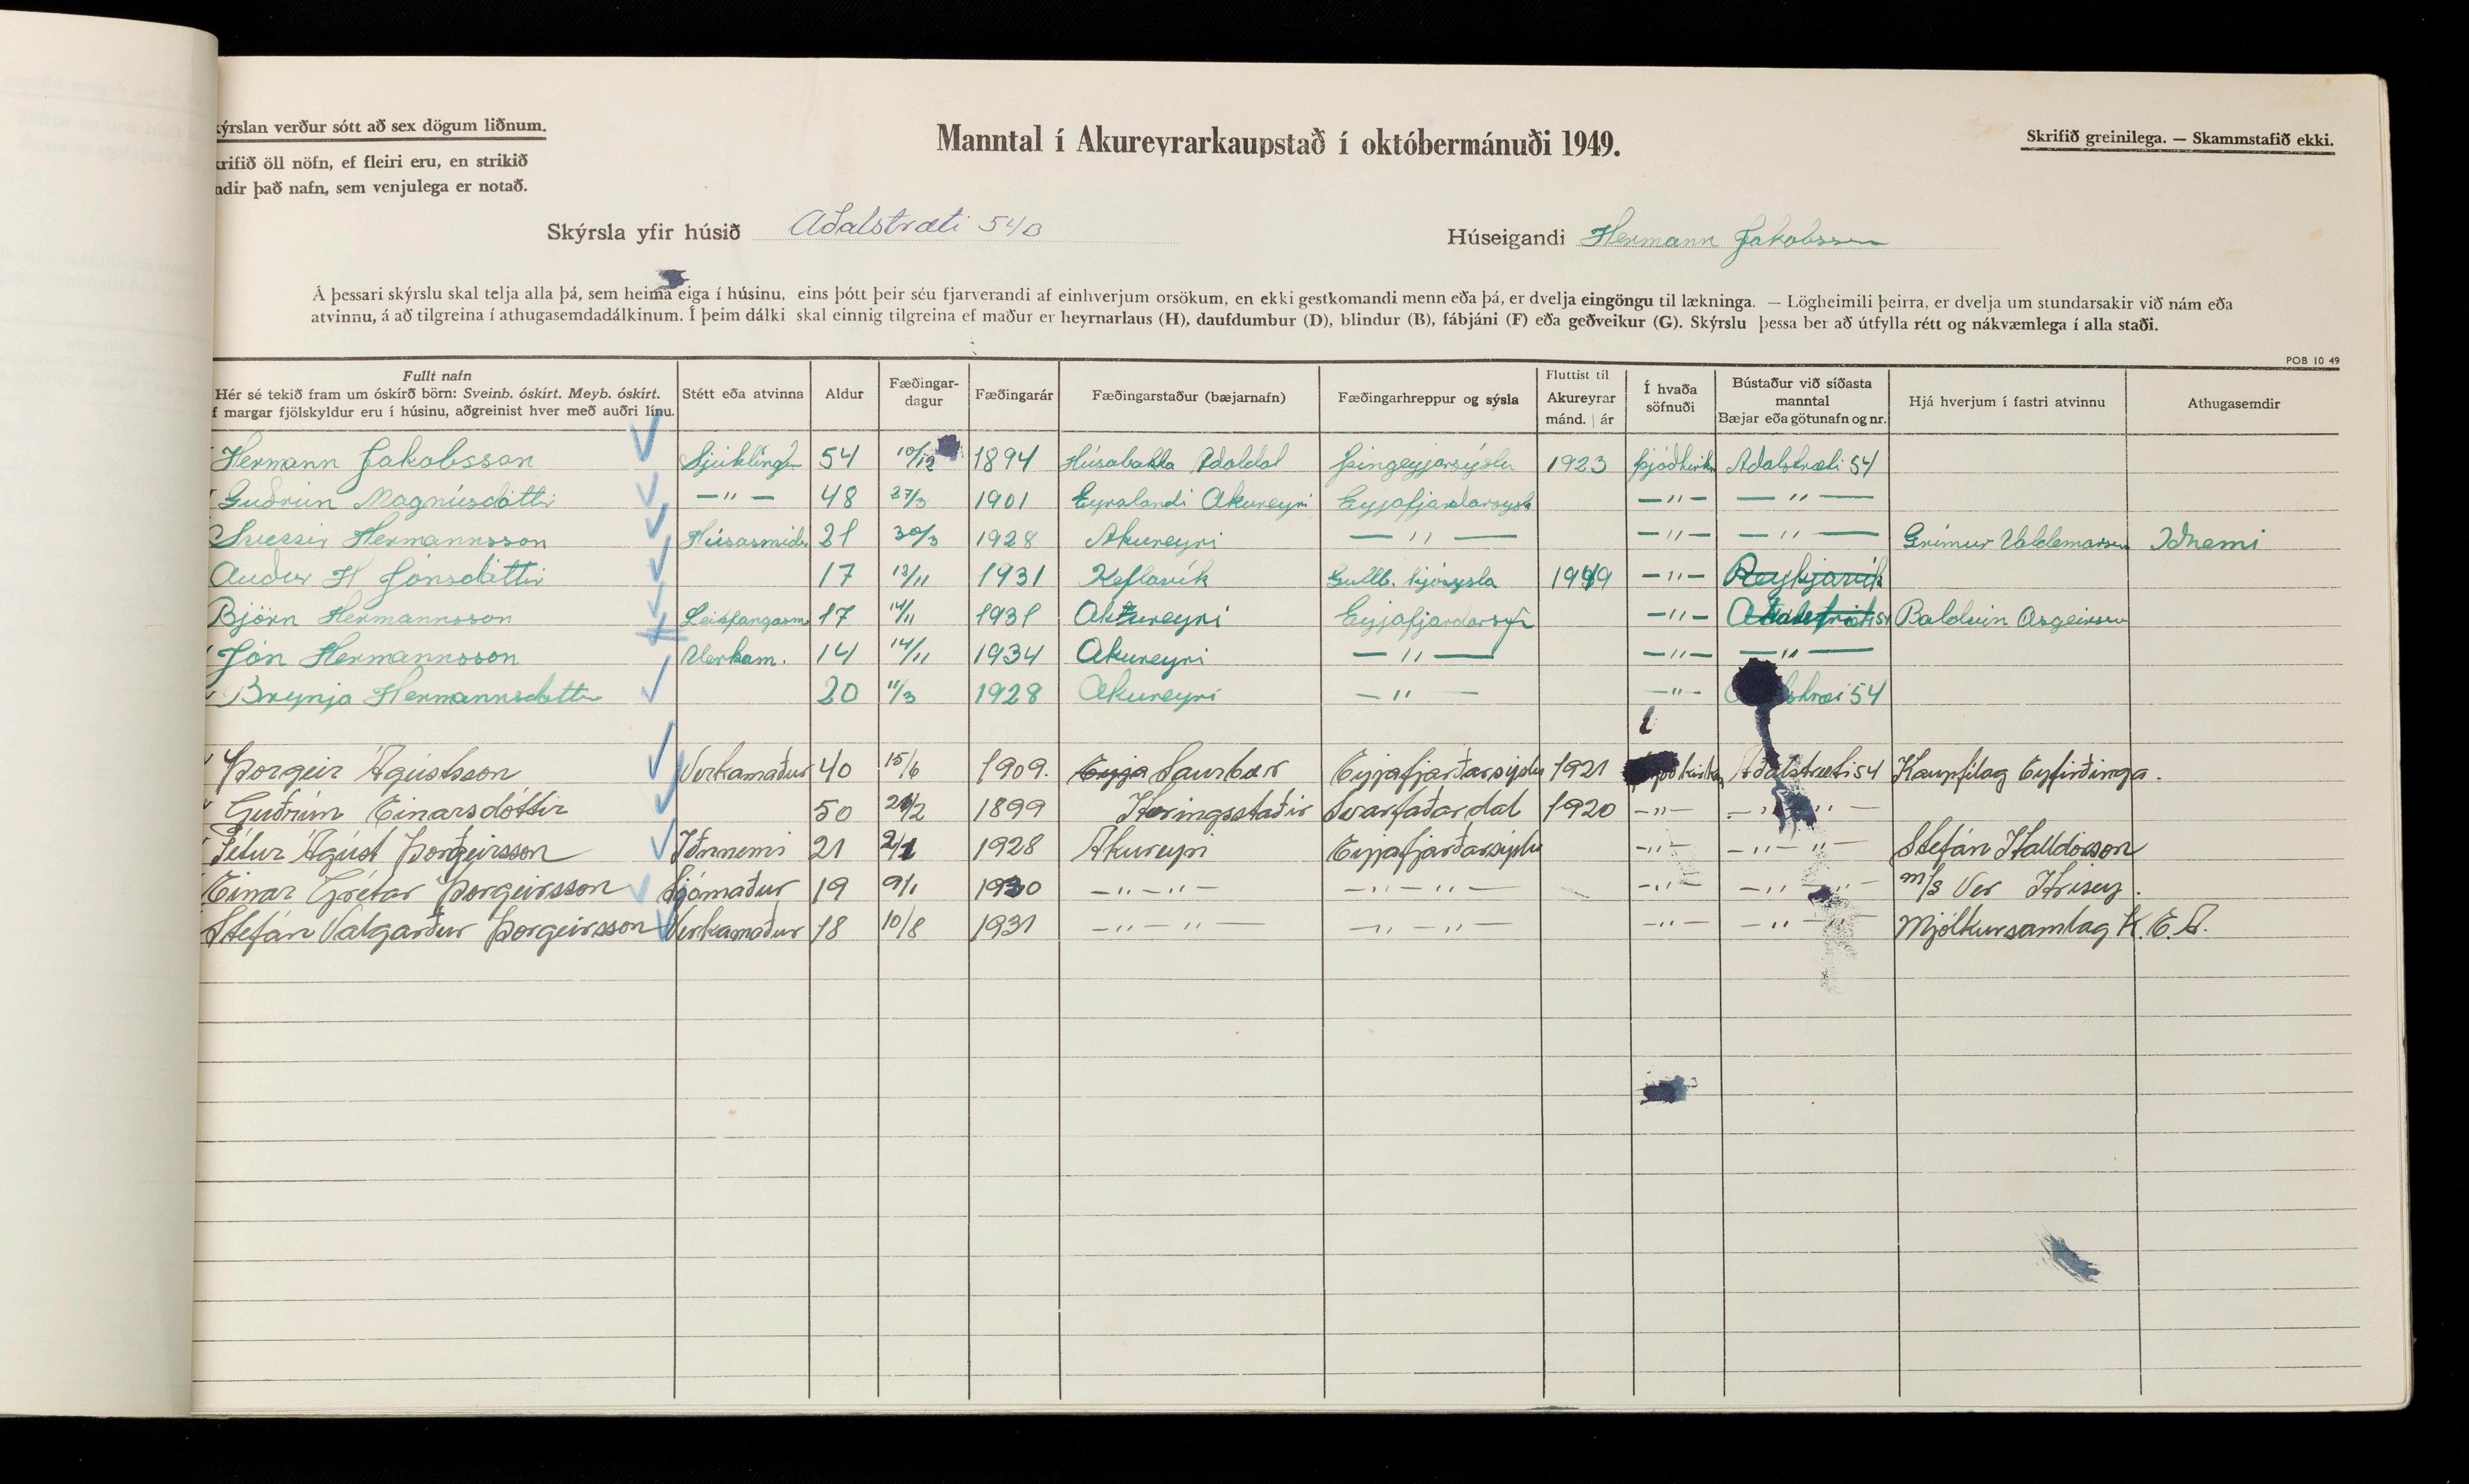 kýrslan verður sótt að sex dögum liðnum.
krifið öll nöfn, ef fleiri eru, en strikið
ndir það nafn, sem venjulega er notað.
Manntal í Akureyrarkaupstað í októbermánuði 1949.
Skrifið greinilega. — Skammstafið ekki.
Skýrsla yfir húsið Aðalstræti 54B
Húseigandi Hermann Jakobsson
Á þessari skýrslu skal telja alla þá, sem heima eiga í húsinu, eins þótt þeir séu fjarverandi af einhverjum orsökum, en ekki gestkomandi menn eða þá, er dvelja eingöngu til lækninga. — Lögheimili þeirra, er dvelja um stundarsakir við nám eða
atvinnu, á að tilgreina í athugasemdadálkinum. Í þeim dálki skal einnig tilgreina ef maður er heyrnarlaus (H), daufdumbur (D), blindur (B), fábjáni (F) eða geðveikur (G). Skýrslu þessa ber að útfylla rétt og nákvæmlega í alla staði.
POB 10 49
Fullt nafn
Hér sé tekið fram um óskírð börn: Sveinb. óskírt. Meyb. óskírt.
f margar fjölskyldur eru í húsinu, aðgreinist hver með auðri línu.
Stétt eða atvinna
Aldur
Fæðingar-
dagur
Fæðingarár
Fæðingarstaður (bæjarnafn)
Fæðingarhreppur og sýsla
Fluttist til
Akureyrar
mánd. | ár
Í hvaða
söfnuði
Bústaður við síðasta
manntal
Bæjar eða götunafn og nr.
Hjá hverjum í fastri atvinnu
Athugasemdir
Hermann Jakobsson Sjúklingur 54 10/12 1894 Húsabakka Adaldal Þingeyjarsýslu 1923 Þjóðkirkj Adalstræti 54
Guðrún Magnúsdóttir —"— 48 27/3 1901 Eyralandi Akureyri Eyjafjardarsysla —"— —"—
Sverrir Hermannsson Húsasmidur 21 30/3 1928 Akureyri —"— —"— —"— Grímur Valdemarsson Iðnemi
Audur H Jónsdóttir 17 13/11 1931 Keflavík Gullb. kjósysla 1949 —"— Reykjavík
Björn Hermannsson Leikfangasm 17 14/11 1931 Akureyri Eyjafjardarsýs —"— Baldvin Asgeirsson
Jón Hermannsson Verkam. 14 14/11 1934 Akureyri —"— —"— —"—
Brynja Hermannsdottir 20 11/3 1928 Akureyri —"— —"— 54
Þorgeir Ágústsson Verkamaður 40 15/6 1909. Eyja Saurbær Eyjafjarðarsýslu 1921 Aðalstræti 54 Kaupfélag Eyfirðinga.
Guðrún Einarsdóttir 50 1899 Hæringsstaðir Svarfaðardal 1920 —"— —"—
Pétur Ágúst Þorgeirsson Iðnnemi 21 2/1 1928 Akureyri Eyjafjarðarsýslu —"— —"—"— Stefán Halldórsson
Einar Grétar Þorgeirsson Sjómaður 19 9/1 1930 —"—"— —"—"— —"— —"—"— m/s Ver Hrísey.
Stefán Valgarður Þorgeirsson Verkamaður 18 10/8 1931 —"—"— —"—"— —"— —"— Mjólkursamlag K.E.A.